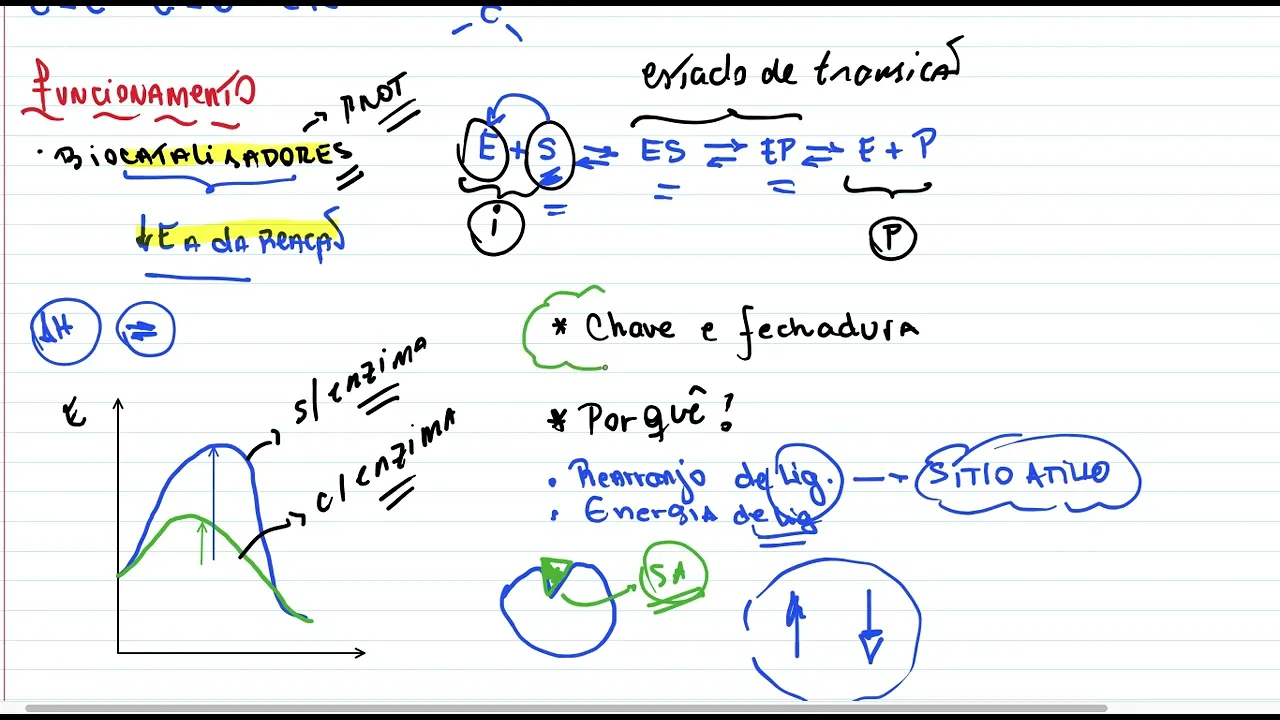 Funcionamento
PROT
• BIOCATALISADORES
↓ EA da Reação
estado de transição
E + S ⇌ ES ⇌ EP ⇌ E + P
i
P
ΔH ⇌
* Chave e fechadura
E
s/ enzima
c/ enzima
* Por quê!
• Rearranjo de Lig. → SITIO ATIVO
• Energia de Lig
SA